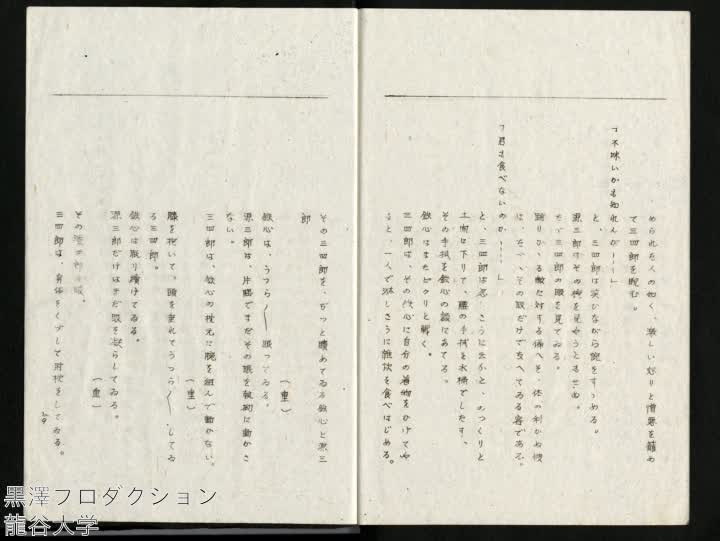 められた人の如く、激しい怒りと憎悪を籠め
て三四郎を睨む。
「不味いかも知れんが……」
と、三四郎は笑ひながら碗をすゝめる。
源三郎はその椀を見やうともせぬ。
たゞ三四郎の眼を見てゐる。
その眼だけで支へてゐる客である。
「君は食べないのか……」
土間に下りて、腰の手拭を水桶でしたす、
その手拭を鉄心の額にあてる。
鉄心はまたピクリと動く。
三四郎は、その鉄心に自分の着物をかけてや
ると、一人で淋しさうに雑炊を食べはじめる。
その三四郎を、ぢっと瞶めてゐる鉄心と源三
郎
（重）
鉄心は、うつら／＼眠ってゐる。
源三郎は、片膝でまだその眼を執拗に動かさ
ない。
三四郎は、鉄心の枕元に腕を組んで動かない。
（重）
膝を抱いて、頭を垂れてうつら／＼してゐ
る三四郎。
鉄心は眠り続けてゐる。
源三郎だけはまだ眼を凝らしてゐる。
（重）
その
三四郎は、身体をくずして肘枕をしてゐる。
黒澤プロダクション
龍谷大学